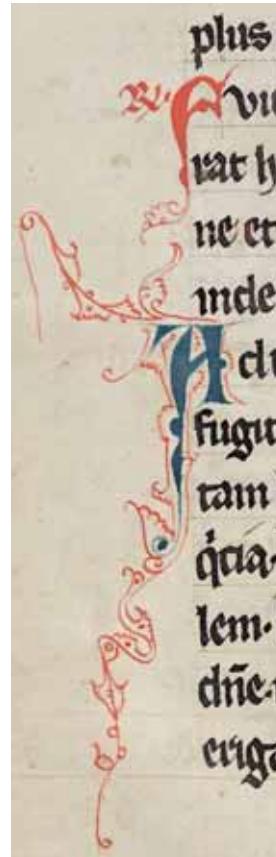 plus
R. Fvi
rat h
ne et
inde
Adu
fugi
tam
q̇cia·
lem·
dn̄e·
erig